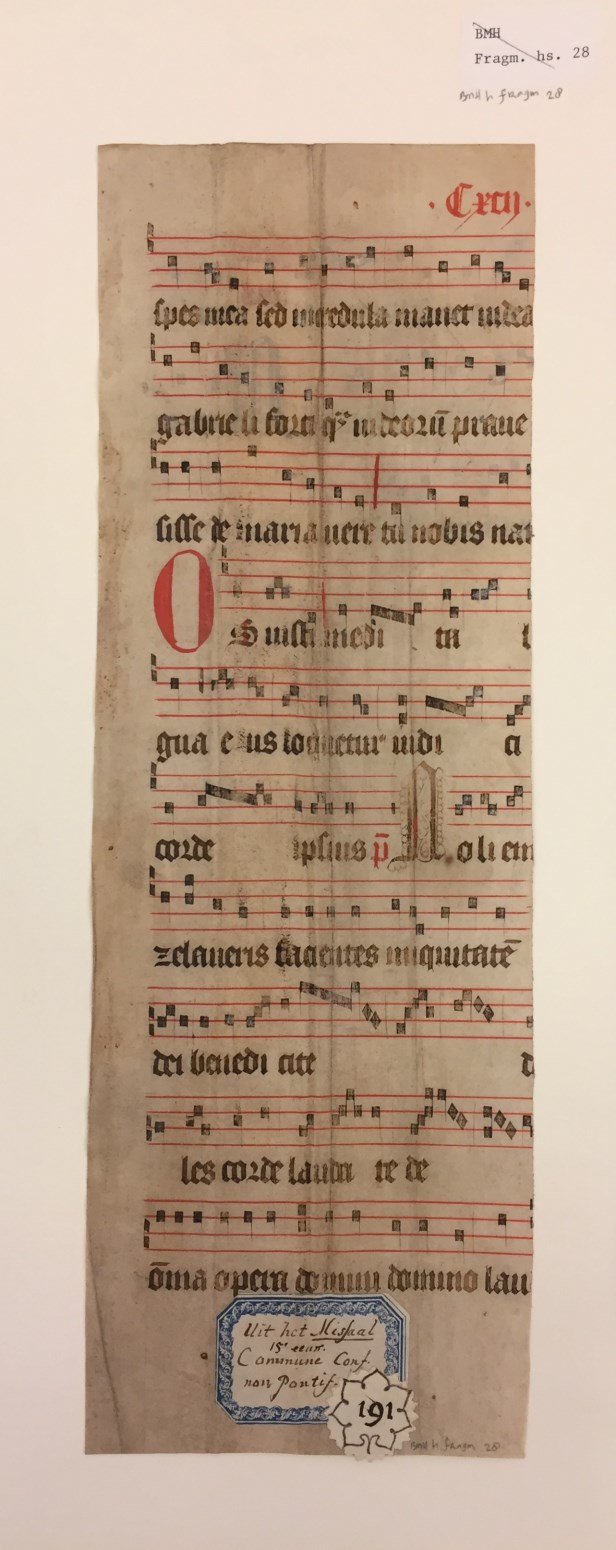 BMH
Fragm. hs. 28
BMH h fragm 28
· Cxcij ·
spes mea sed incredula manet iudea
gabrieli forti qz iudeorū praue
sisse de maria uere tu nobis nat
Os iusti medita l
gua eius loquetur iudici
corde ipsius p̄ Noli em
zelaueris facientes iniquitatē
dei benedicite d
les corde laudate de
ōīa opera domini domino lau
Uit het Missaal
15e eeuw.
Commune Conf.
non Pontif.
191
BMH h fragm 28